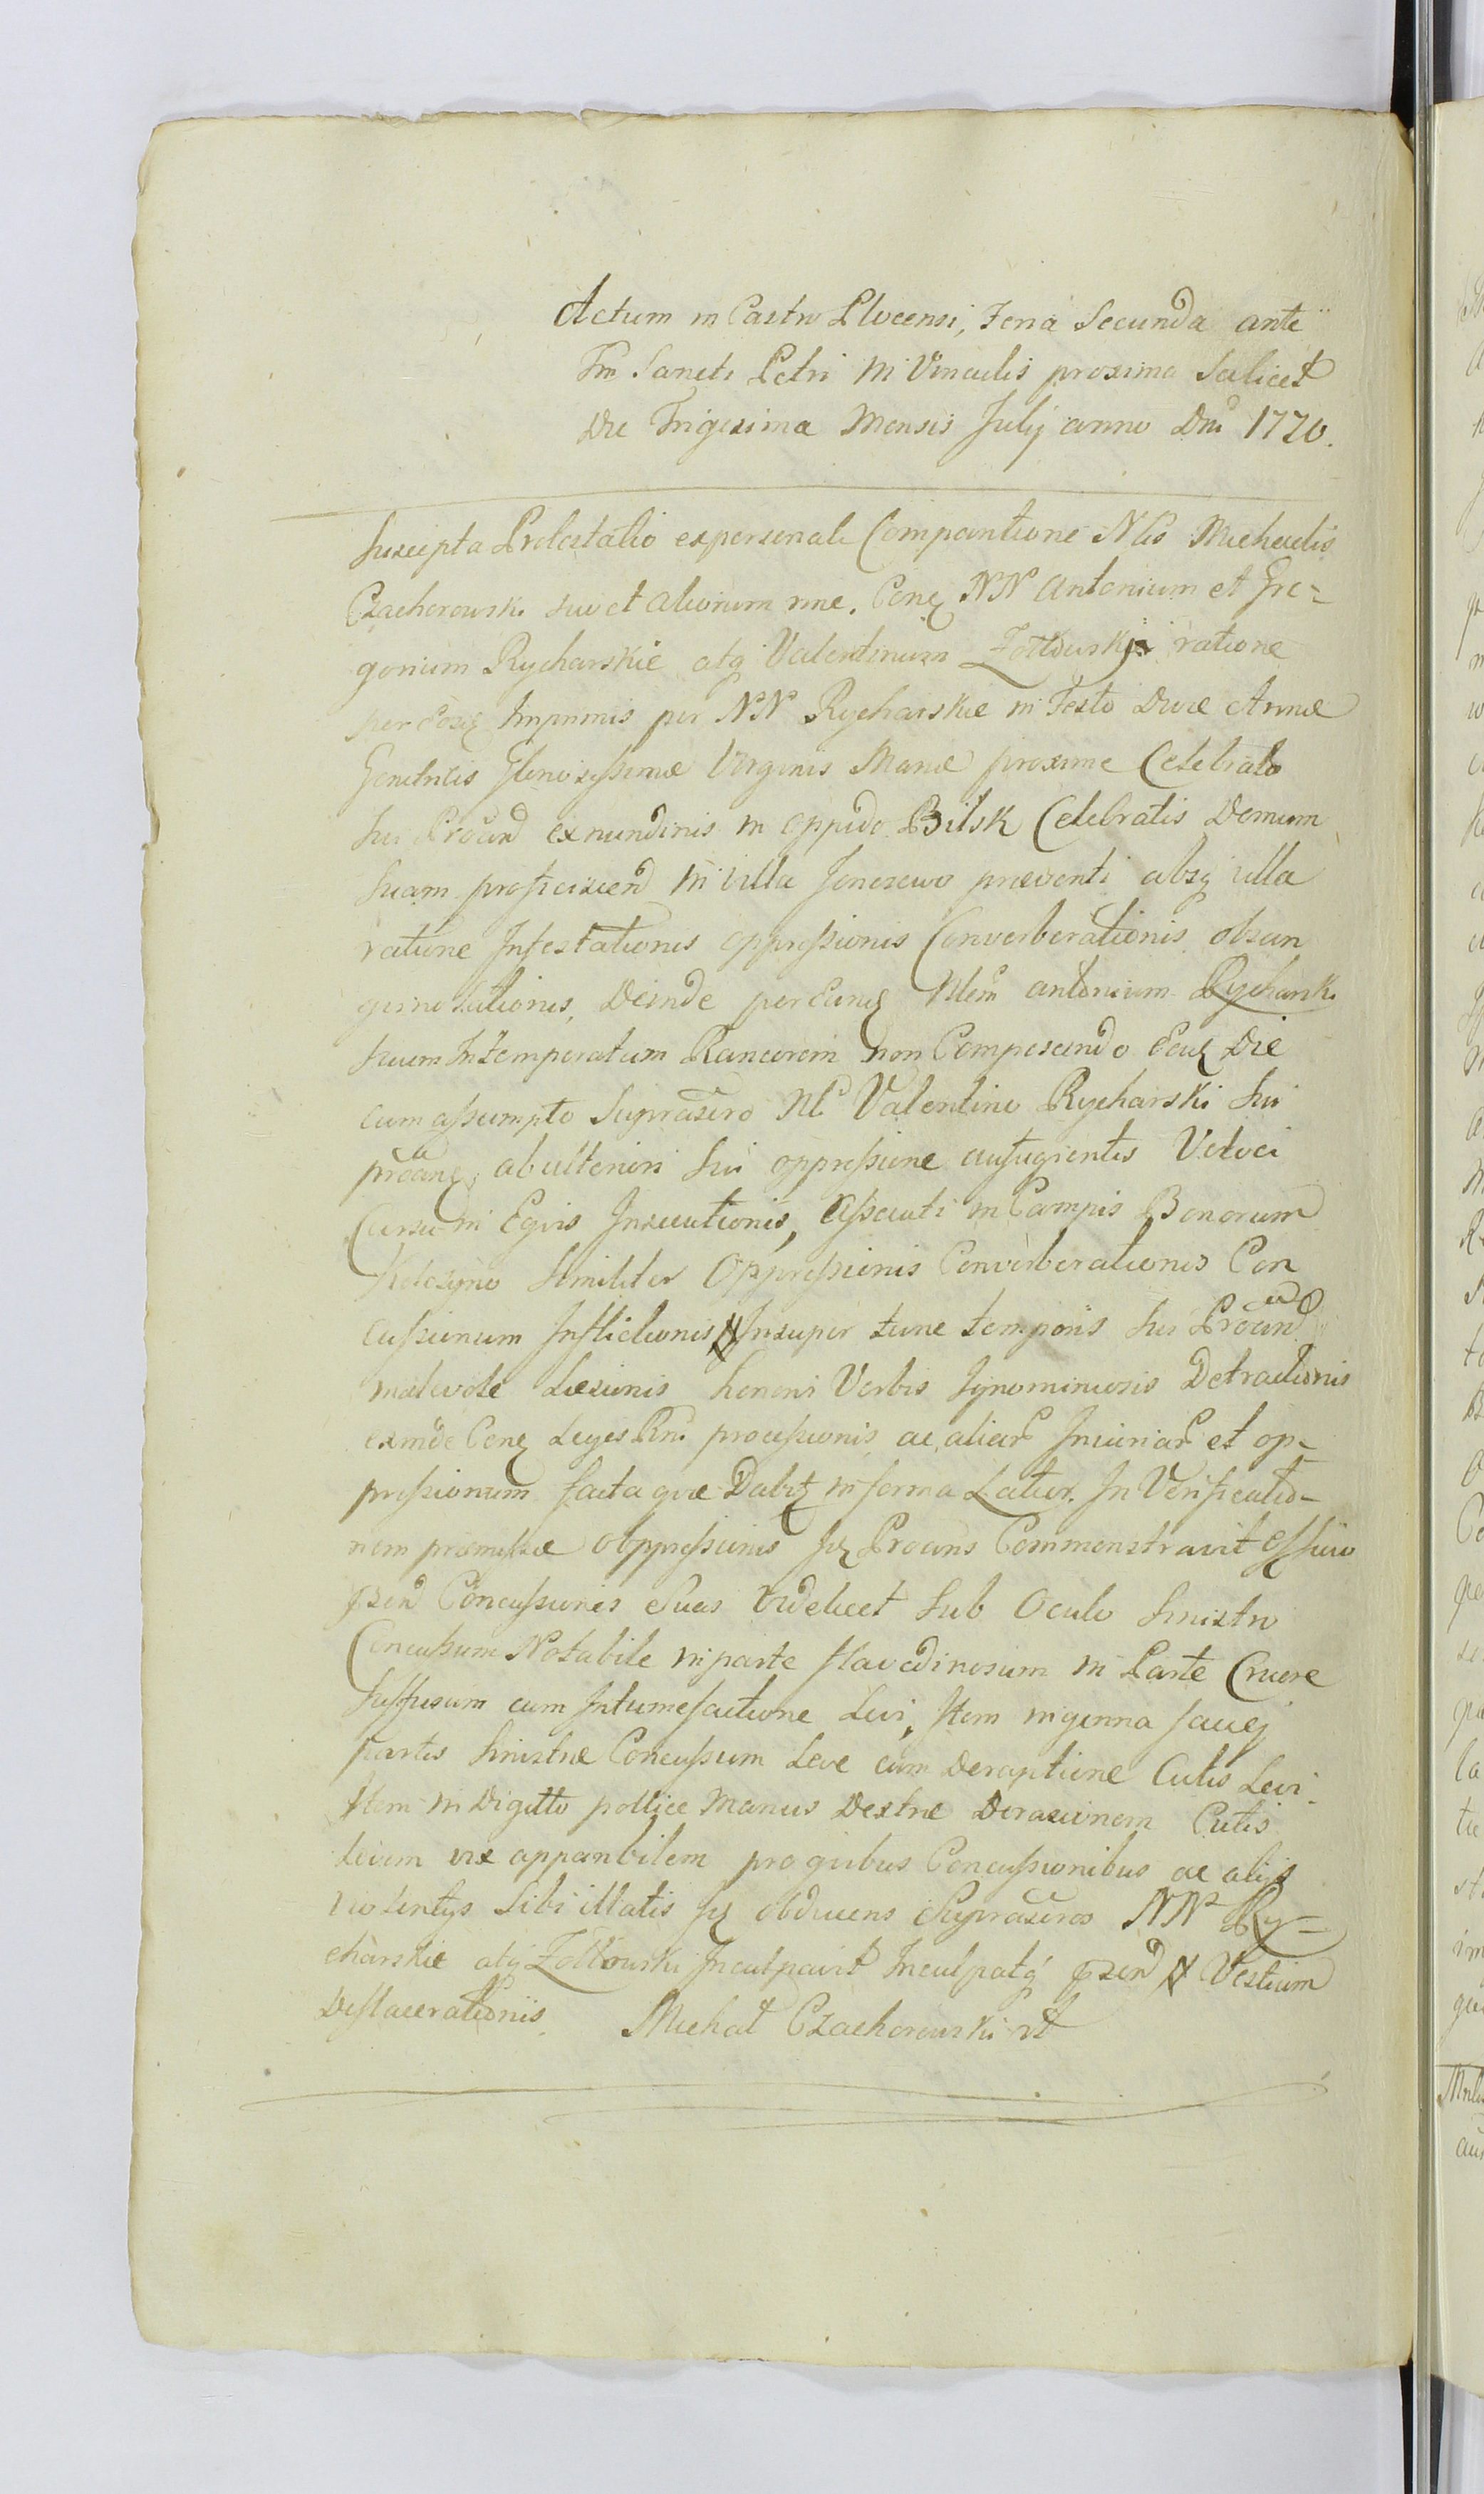 Actum in Castro Plocensi, Feria Secunda ante
Fm Sancti Petri in Vinculis proxima Scilicet
Die Trigesima Mensis Julij anno Dni 1770.
Suscepta Protestatio ex personali Comparitione Nlis Michaelis
Czachorowski suo et aliorum nne. Conq NN Antonium et Gre=
gorium Rycharskie atq Valentinum Zołtowski ratione
per Eosq Imprimis per NN Rycharskie in Festo Divae Annae
Genitricis Gloriosissimae Virginis Mariae proxime Celebrato
Sui Proand ex nundinis in oppido Bilsk Celebratis Domum
Suam proficiscend in villa praeventi absq ulla
ratione Infestationis oppressionis Converberationis obsan
guinolationis, Deinde per Eunq Nlem antonium Rycharski
suum Intemperatum Rancorem non Compescendo Eaq Die
cum assumpto Suprascro Nle Valentino Rycharski Sui
proanq, ab ulteriori Sui oppressione aufugientis Veloci
Cursu in Eqvis Insecutionis, assecuti in Campis Bonorum
Similiter Oppressionis Converberationis Con
cussionum Inflictionis Insuper tunc temporis Sui Proand
malevole Laesionis honoris Verbis Ignominiosis Detractionis
exinde Conq Leges Rni processionis ac aliar Iniuriar et op-
pressionum facta qvae Dabitq in forma Latior. In Verificatio-
nem praemissae obppressionis Iq Proans Commonstravit officio
pzen Concussiones Suas videlicet Sub Oculo Sinistro
Concussum Notabile in parte flavedinosum in Parte Cruore
Suffusum cum Intumefactione Levi, Item in genna
partis Sinistrae Concussum Leve cum Deraptione Cutis Levi.
Item in Digitto pollice Manus Dextrae Derasionem Cutis
Levem vix apparibilem pro qvibus Concussionibus ac alijs
violentys Sibi illatis Iq obducens Suprascros NN Ry=
charskie atq Zołtowski Inculpavit Inculpatq pzen Vestium
Deslacerationiis. Michał Czachorowski